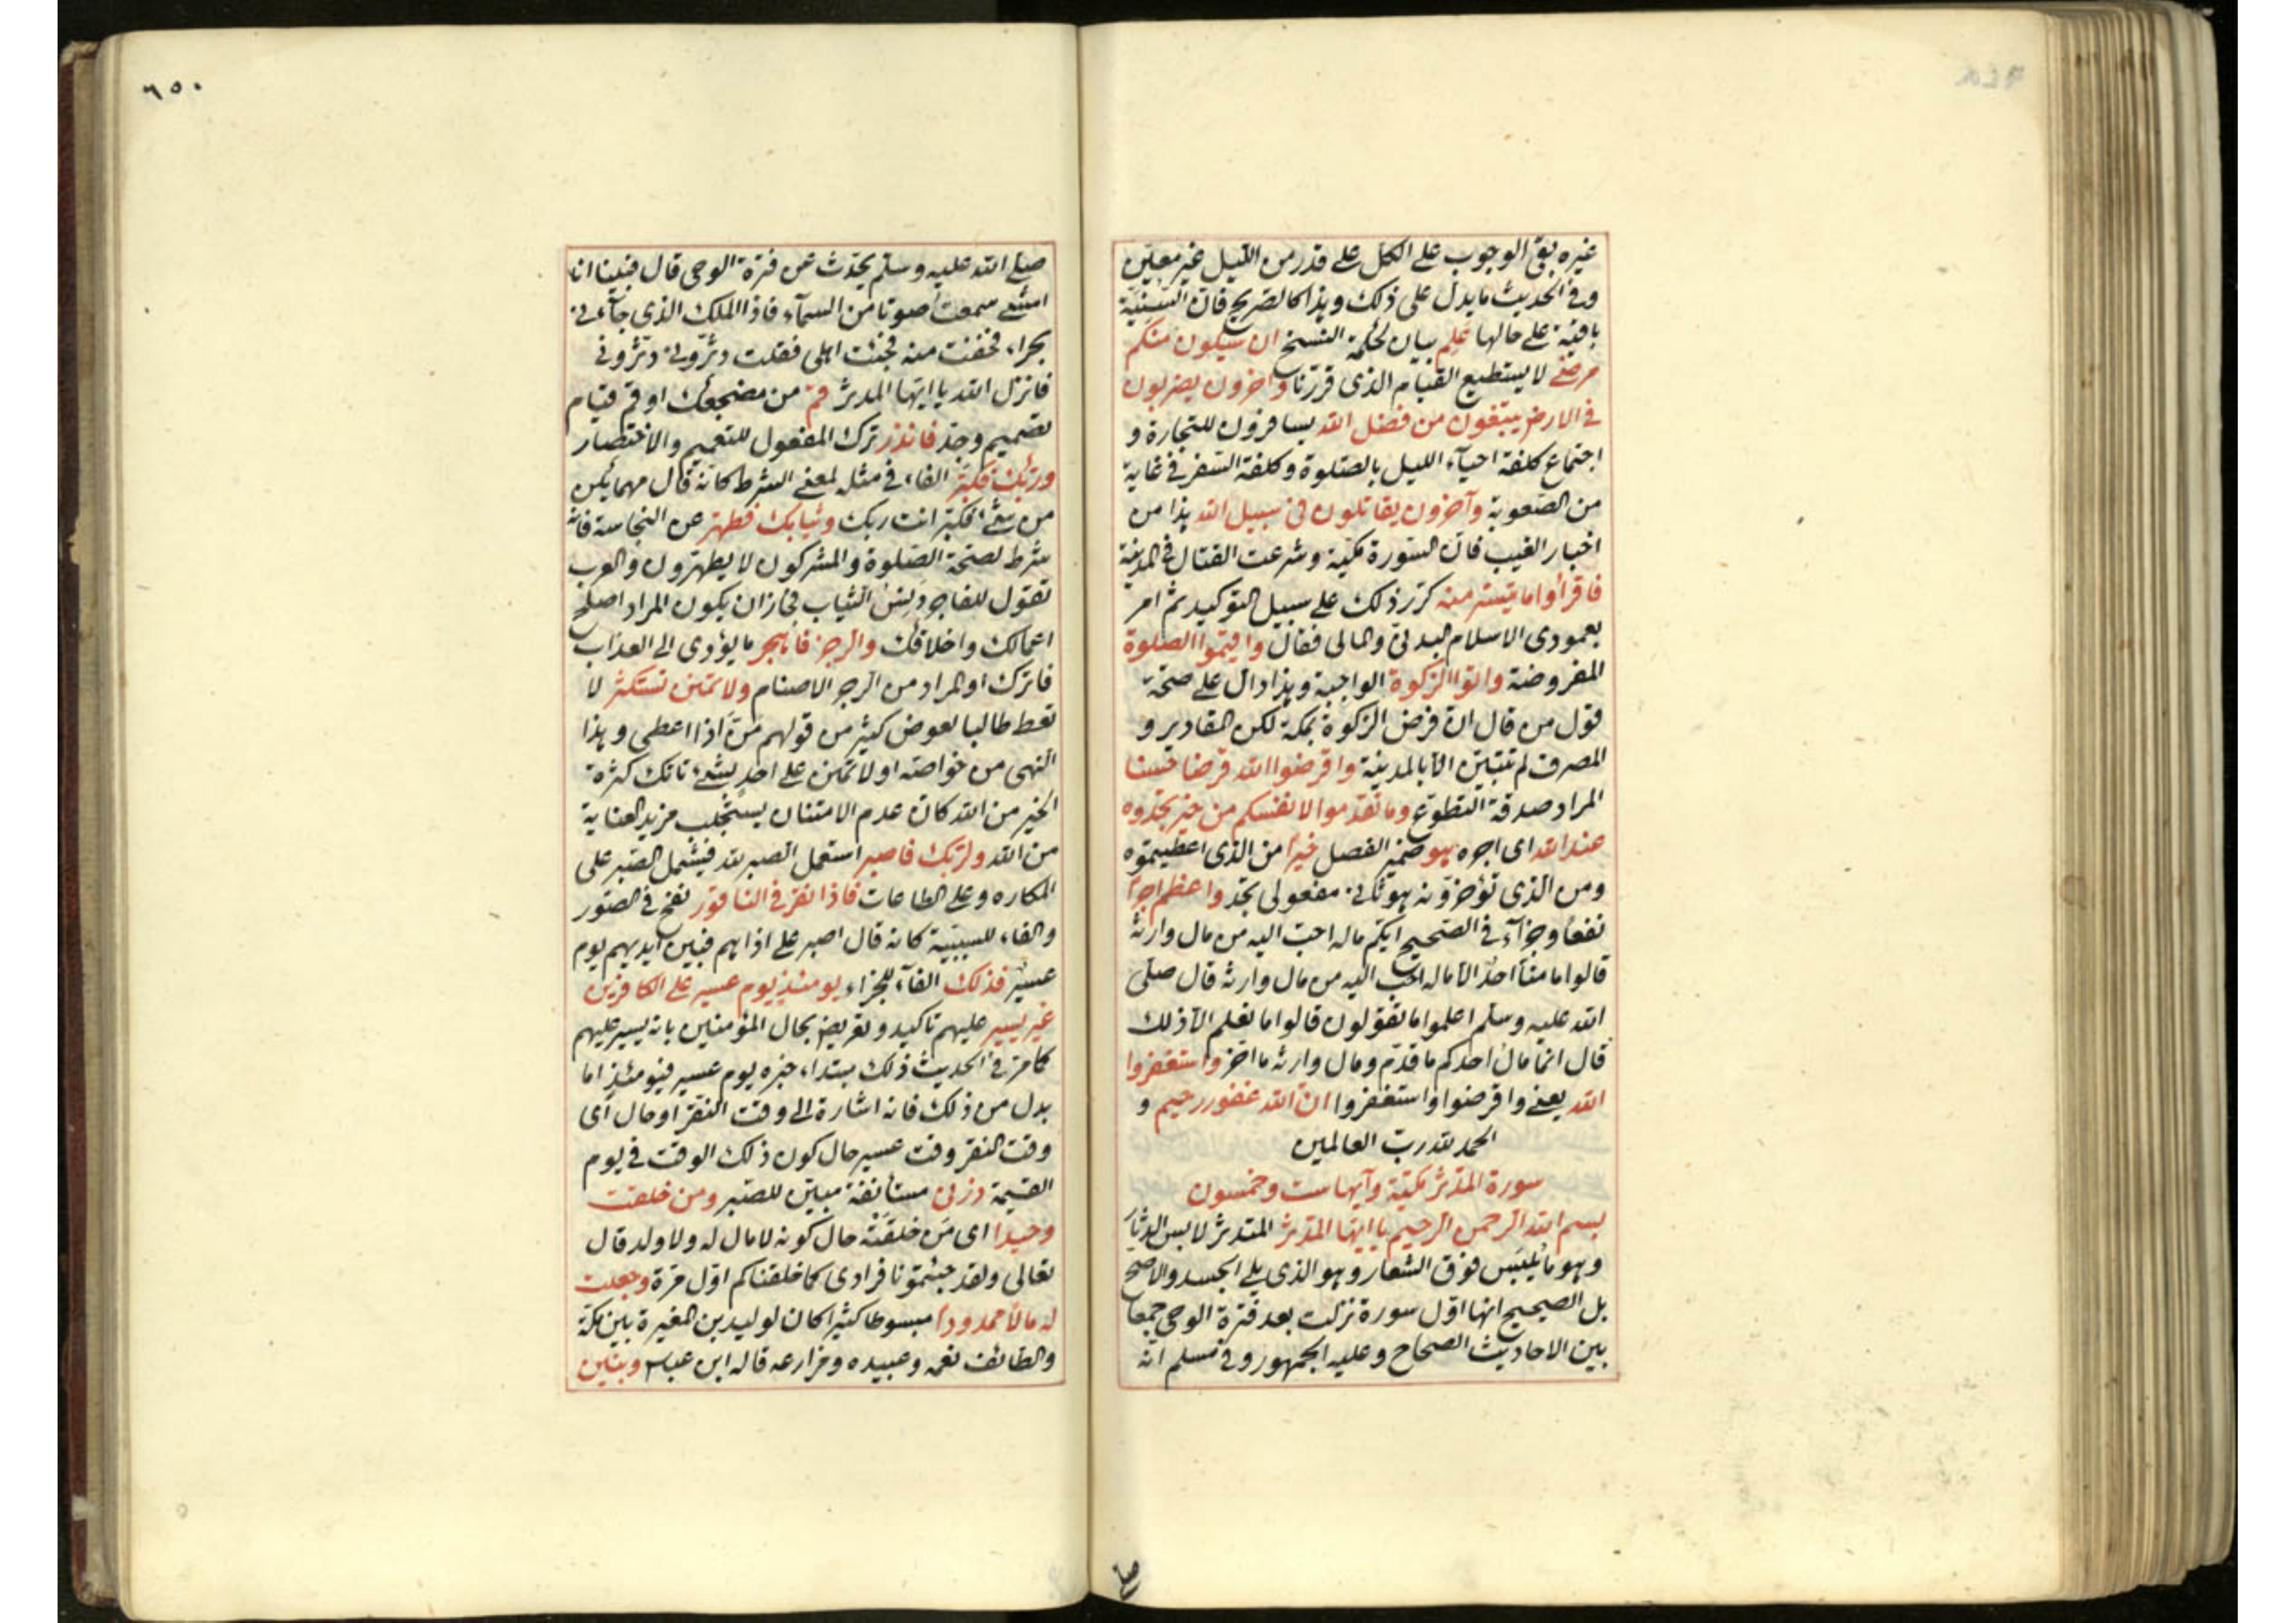 غيره بقى الوجوب على الكل على قدر من الليل غير معين
وفى الحديث ما يدل على ذلك وهذا كالصريح فان السنية
باقية على حالها علم بيان لحكمة النسخ ان سيكون منكم
مرضى لا يستطيع القيام الذى قررنا وآخرون يضربون
فى الارض يبتغون من فضل الله يسافرون للتجارة و
اجتماع كلفة احياء الليل بالصلوة وكلفة السفر فى غاية
من الصعوبة وآخرون يقاتلون فى سبيل الله هذا من
اخبار الغيب فان السورة مكية وشرعت القتال فى المدينة
فاقرأوا ما تيسر منه كرر ذلك على سبيل التوكيد ثم امر
بعمودى الاسلام البدنى والمالى فقال واقيموا الصلوة
المفروضة واتوا الزكوة الواجبة وهذا دال على صحة
قول من قال ان فرض الزكوة بمكة لكن المقادير و
المصرف لم تتبين الا بالمدينة واقرضوا الله قرضا حسنا
المراد صدقة التطوع وما تقدموا لانفسكم من خير تجدوه
عند الله اى اجره هو ضمير الفصل خيرا من الذى اعطيتموه
ومن الذى تؤخرونه هو ثانى مفعولى تجد واعظم اجرا
نفعا وجزآء فى الصحيح ايكم ماله احب اليه من مال وارثه
قالوا ما منا احد الا ماله احب اليه من مال وارثه قال صلى
الله عليه وسلم اعلموا ما تقولون قالوا ما نعلم الا ذلك
قال انما مال احدكم ما قدم ومال وارثه ما اخر واستغفروا
الله يعنى واقرضوا واستغفروا ان الله غفور رحيم و
الحمد لله رب العالمين
سورة المدثر مكية وآيها ست وخمسون
بسم الله الرحمن الرحيم يا ايها المدثر المتدثر لابس الدثار
وهو ما يلبس فوق الشعار وهو الذى يلى الجسد والاصح
بل الصحيح انها اول سورة نزلت بعد فترة الوحى جمعا
بين الاحاديث الصحاح وعليه الجمهور وفى مسلم انه
صلى
٦٥٠
صلى الله عليه وسلم يحدث عن فترة الوحى قال فبينا انا
امشى سمعت صوتا من السمآء فاذا الملك الذى جآءنى
بحراء فخفت منه فجئت اهلى فقلت دثرونى دثرونى
فانزل الله يا ايها المدثر قم من مضجعك او قم قيام
تصميم وجد فانذر ترك المفعول للتعميم والاختصار
وربك فكبر الفاء فى مثله لمعنى الشرط كانه قال مهما يكن
من شئ فكبر انت ربك وثيابك فطهر عن النجاسة فانه
شرط لصحة الصلوة والمشركون لا يطهرون والعرب
تقول للفاجر دنس الثياب فجاز ان يكون المراد اصلح
اعمالك واخلاقك والرجز فاهجر ما يؤدى الى العذاب
فاترك او المراد من الرجز الاصنام ولا تمنن تستكثر لا
تعط طالبا لعوض كثير من قولهم من اذا اعطى وهذا
النهى من خواصه او لا تمنن على احد بشئ
الخير من الله كان عدم الامتنان يستجلب مزيد العناية
من الله ولربك فاصبر استعمل الصبر لله فيشمل الصبر على
المكاره وعلى الطاعات فاذا نقر فى الناقور نفخ فى الصور
والفاء للسببية كانه قال اصبر على اذاهم فبين ايديهم يوم
عسير فذلك الفآء للجزاء يومئذ يوم عسير على الكافرين
غير يسير عليهم تاكيد وتعريض بحال المؤمنين بانه يسير عليهم
كما مر فى الحديث ذلك مبتداء خبره يوم عسير فيومئذ اما
بدل من ذلك فانه اشارة الى وقت النقر او حال اى
وقت النقر وقت عسير حال كون ذلك الوقت فى يوم
القيمة ذرنى مستأنفة مبين للصبر ومن خلقت
وحيدا اى من خلقته حال كونه لا مال له ولا ولد قال
تعالى ولقد جئتمونا فرادى كما خلقناكم اول مرة وجعلت
له مالا ممدودا مبسوطا كثيرا كان لوليد بن المغيرة بين مكة
والطائف نعمه وعبيده ومزارعه قاله ابن عباس وبنين